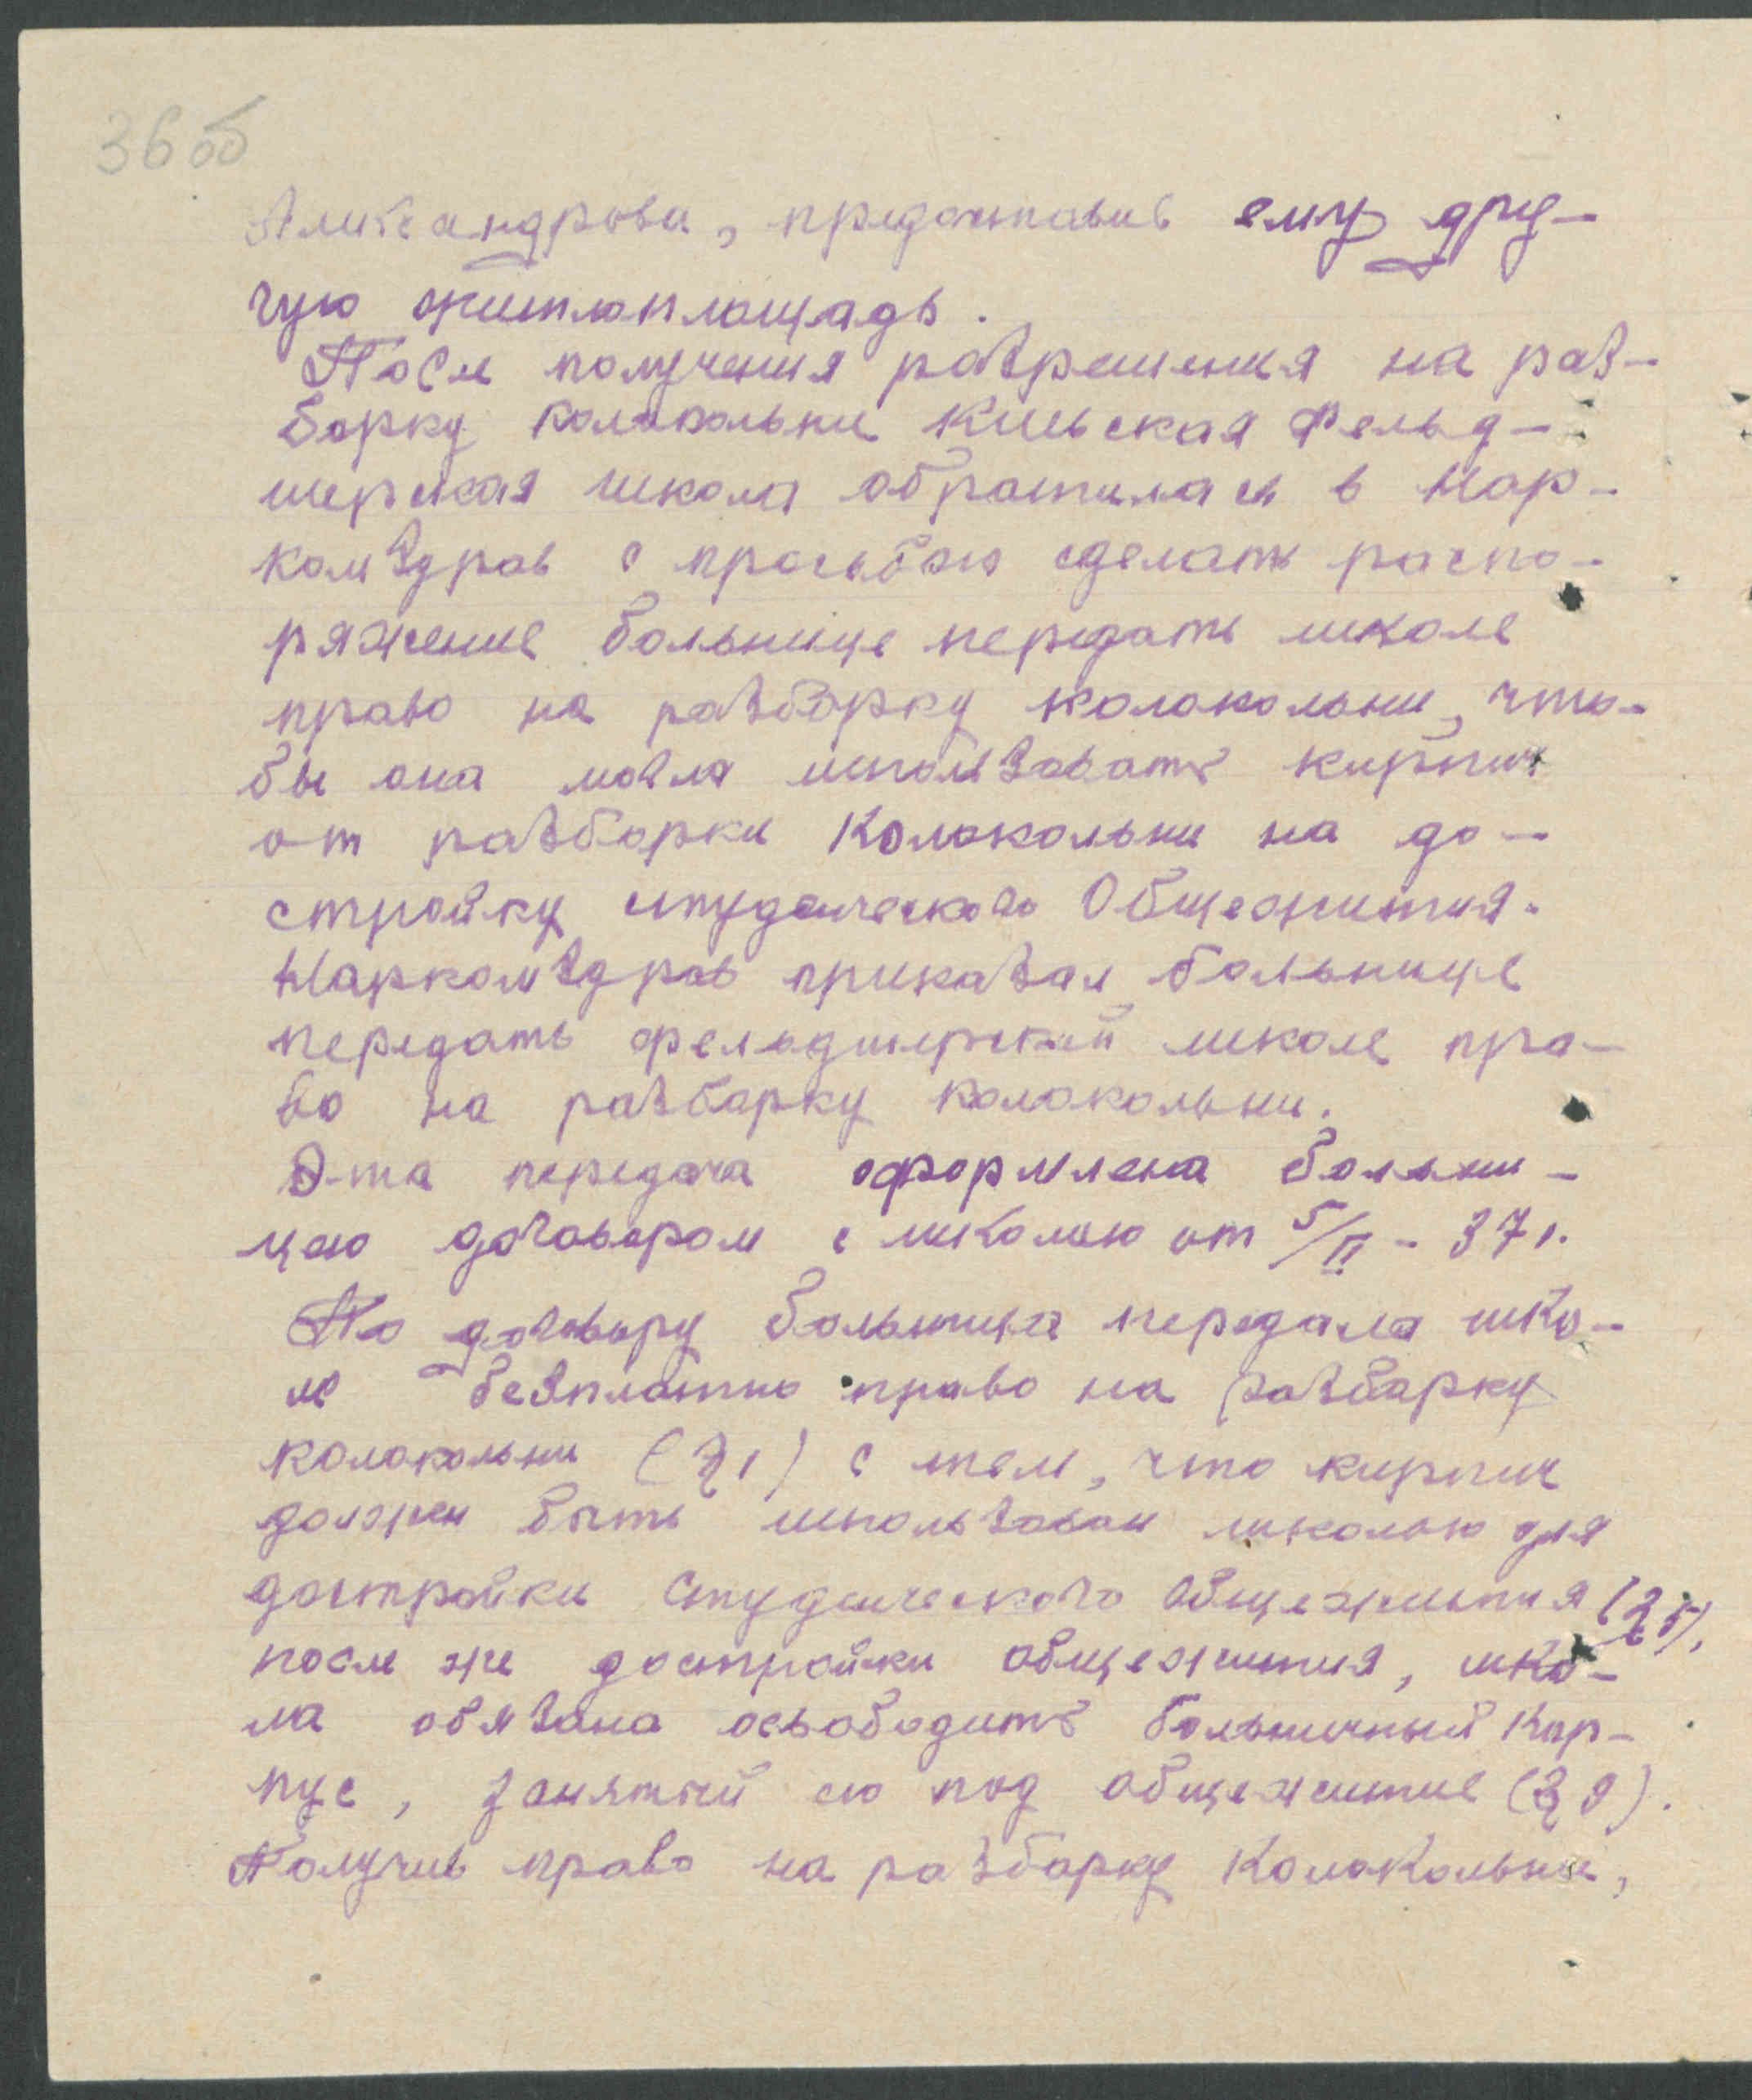 36 об
Александрова, предоставив ему дру-
гую жилплощадь.
После получения разрешения на раз-
борку колокольни Киевская Фельд-
шерская школа обратилась в Нар-
комздрав с просьбою сделать распо-
ряжение больнице передать школе
право на разборку колокольни, что-
бы она могла использовать кирпич
от разборки колокольни на до-
стройку студенческого Общежития.
Наркомздрав приказал больнице
передать фельдшерской школе пра-
во на разборку колокольни.
Эта передача оформлена больни-
цею договором с школою от 5/II - 37 г.
По договору больница передала шко-
ле безплатно право на разборку
колокольни (§ 1) с тем, что кирпич
должен быть использован школою для
достройки Студенческого общежития (§ 5),
после же достройки общежития, шко-
ла обязана освободить больничный кор-
пус, занятый ею под общежитие (§ 9).
Получив право на разборку колокольни,